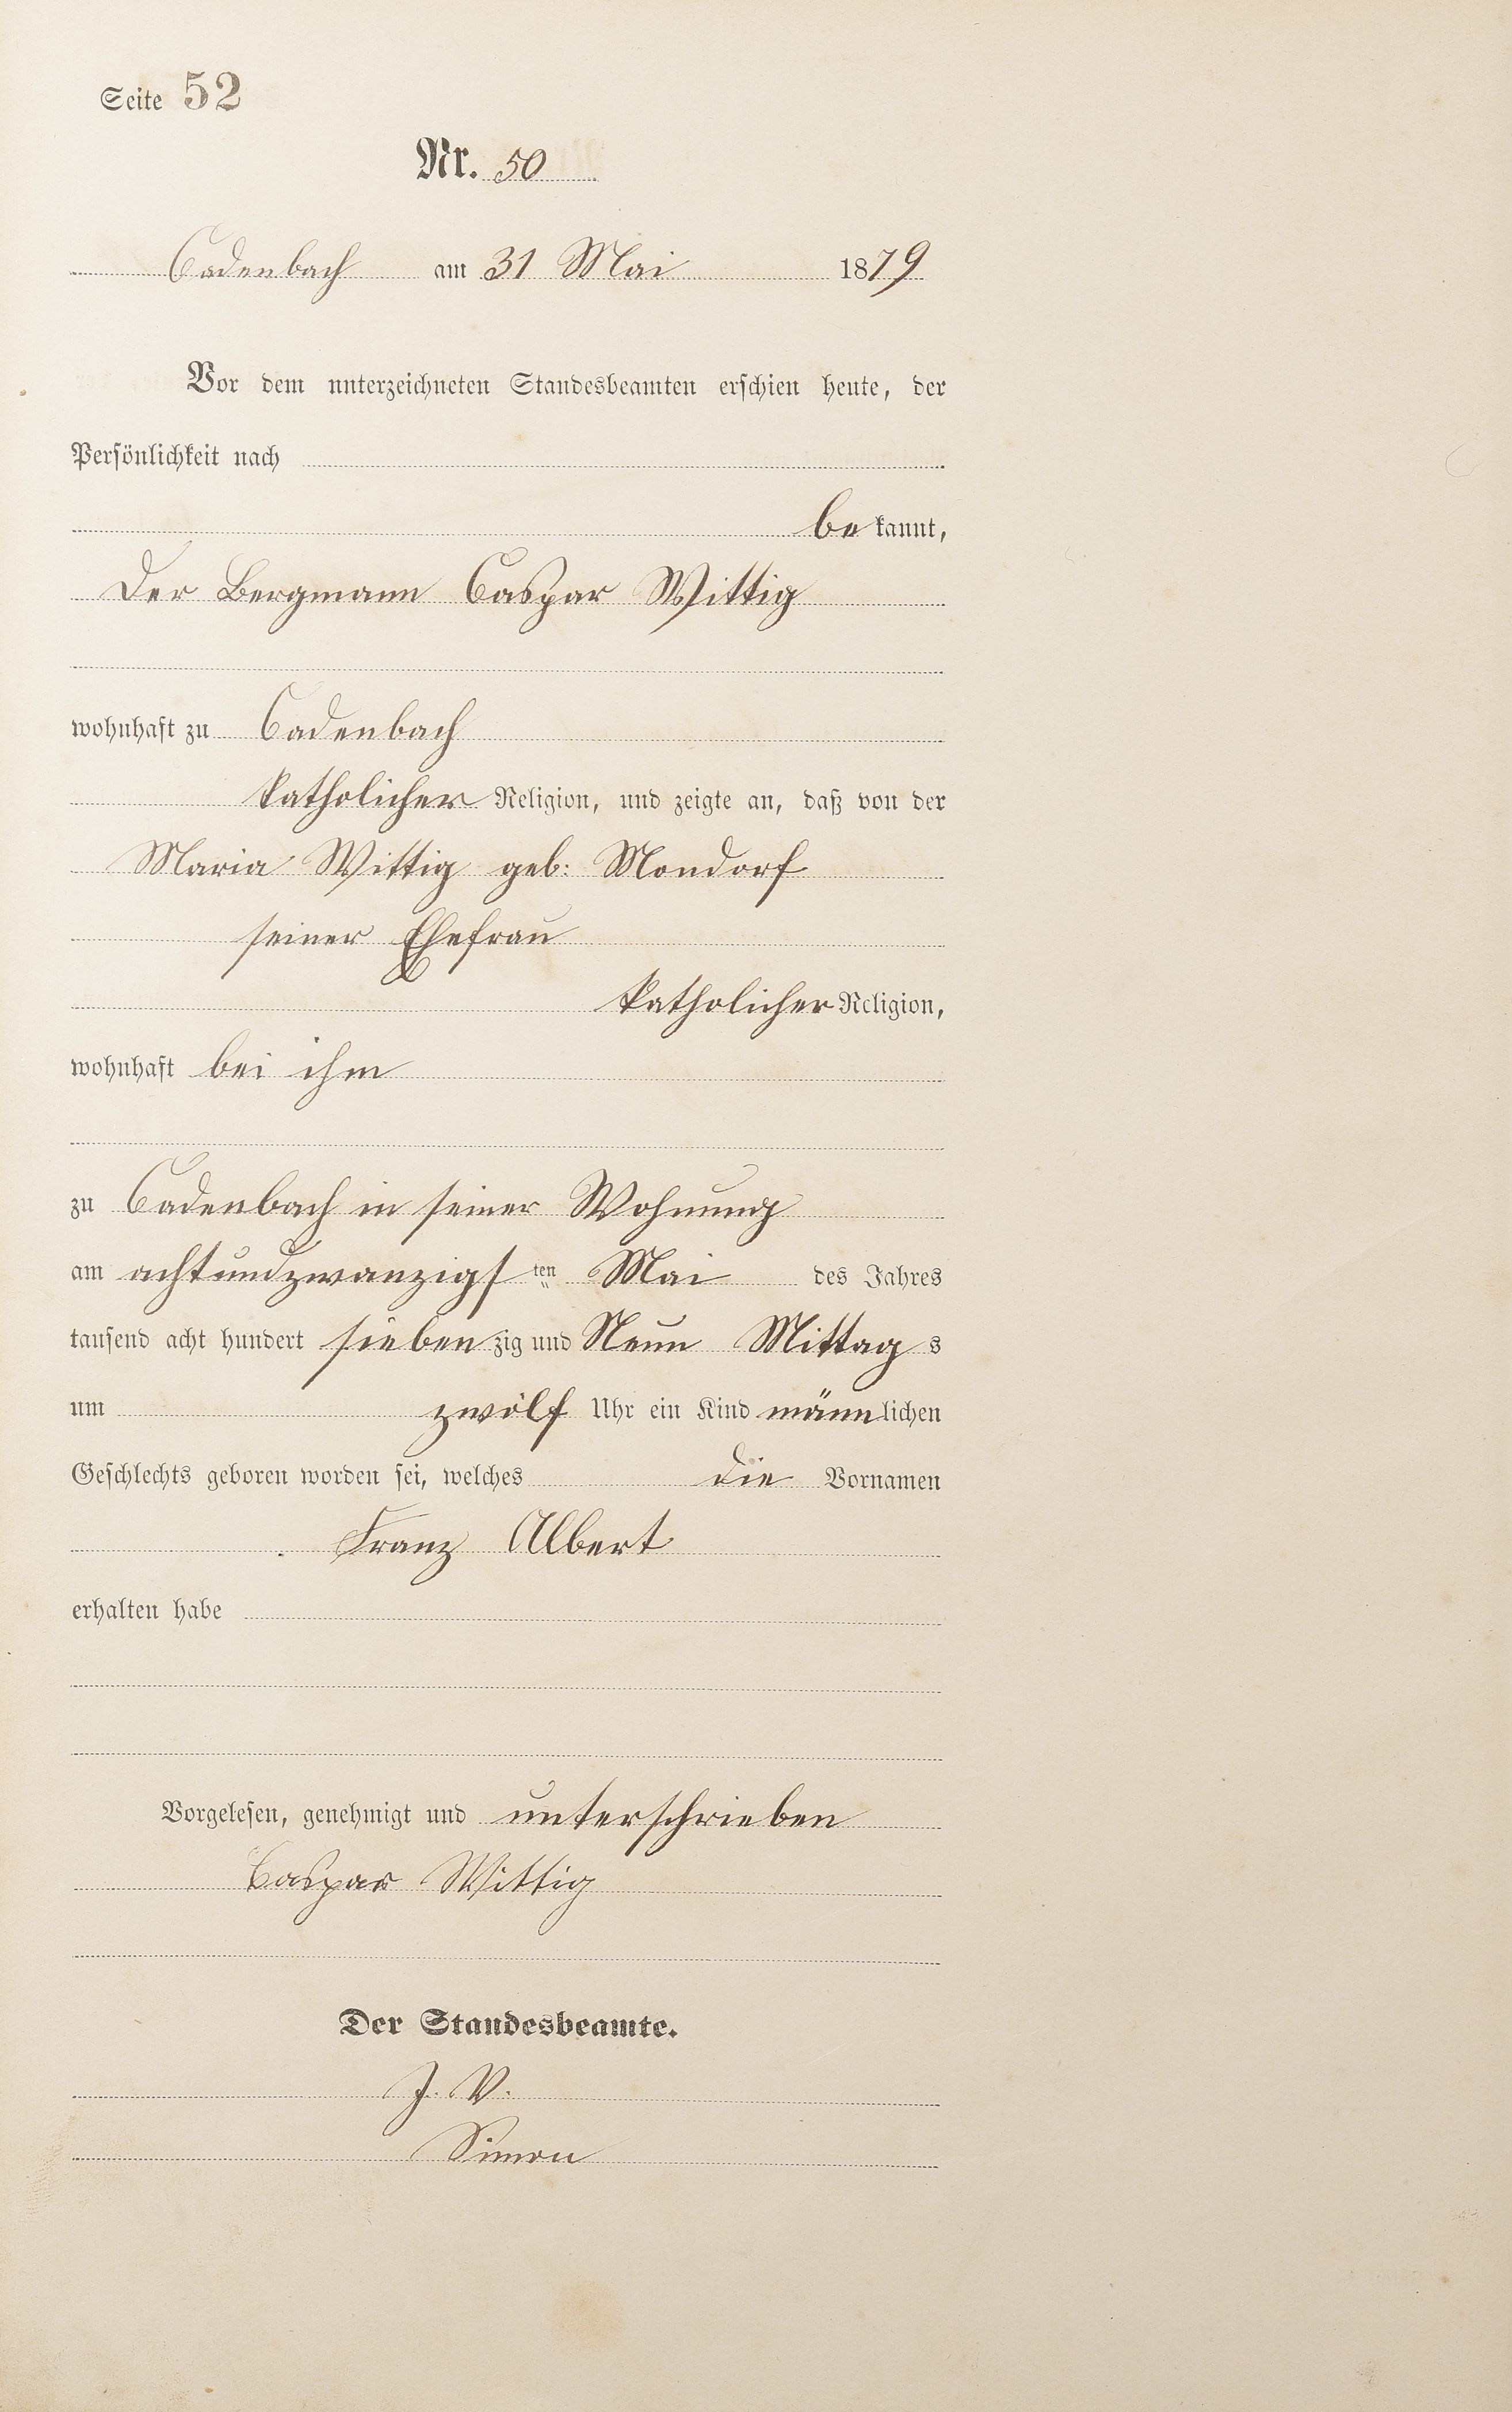 Seite 52
Nr. 50
Cadenbach am 31 Mai 1879
Vor dem unterzeichneten Standesbeamten erschien heute, der
Persönlichkeit nach
bekannt,
Der Bergmann Caspar Wittig
wohnhaft zu Cadenbach
katholicher Religion, und zeigte an, daß von der
Maria Wittig geb: Mondorf
seiner Ehefrau
katholicher Religion,
wohnhaft bei ihm
zu Cadenbach in seiner Wohnung
am achtundzwanzigsten Mai des Jahres
tausend acht hundert siebenzig und Neun Mittags
um zwölf Uhr ein Kind männlichen
Geschlechts geboren worden sei, welches die Vornamen
Franz Albert
erhalten habe
Vorgelesen, genehmigt und unterschrieben
Caspar Wittig
Der Standesbeamte.
J. V.
Simon